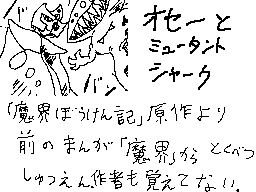 オセーと
ミュータント
シャーク
バン
「魔界ぼうけん記」原作より
前のまんが「魔界」から とくべつ
しゅつえん作者も覚えてない。